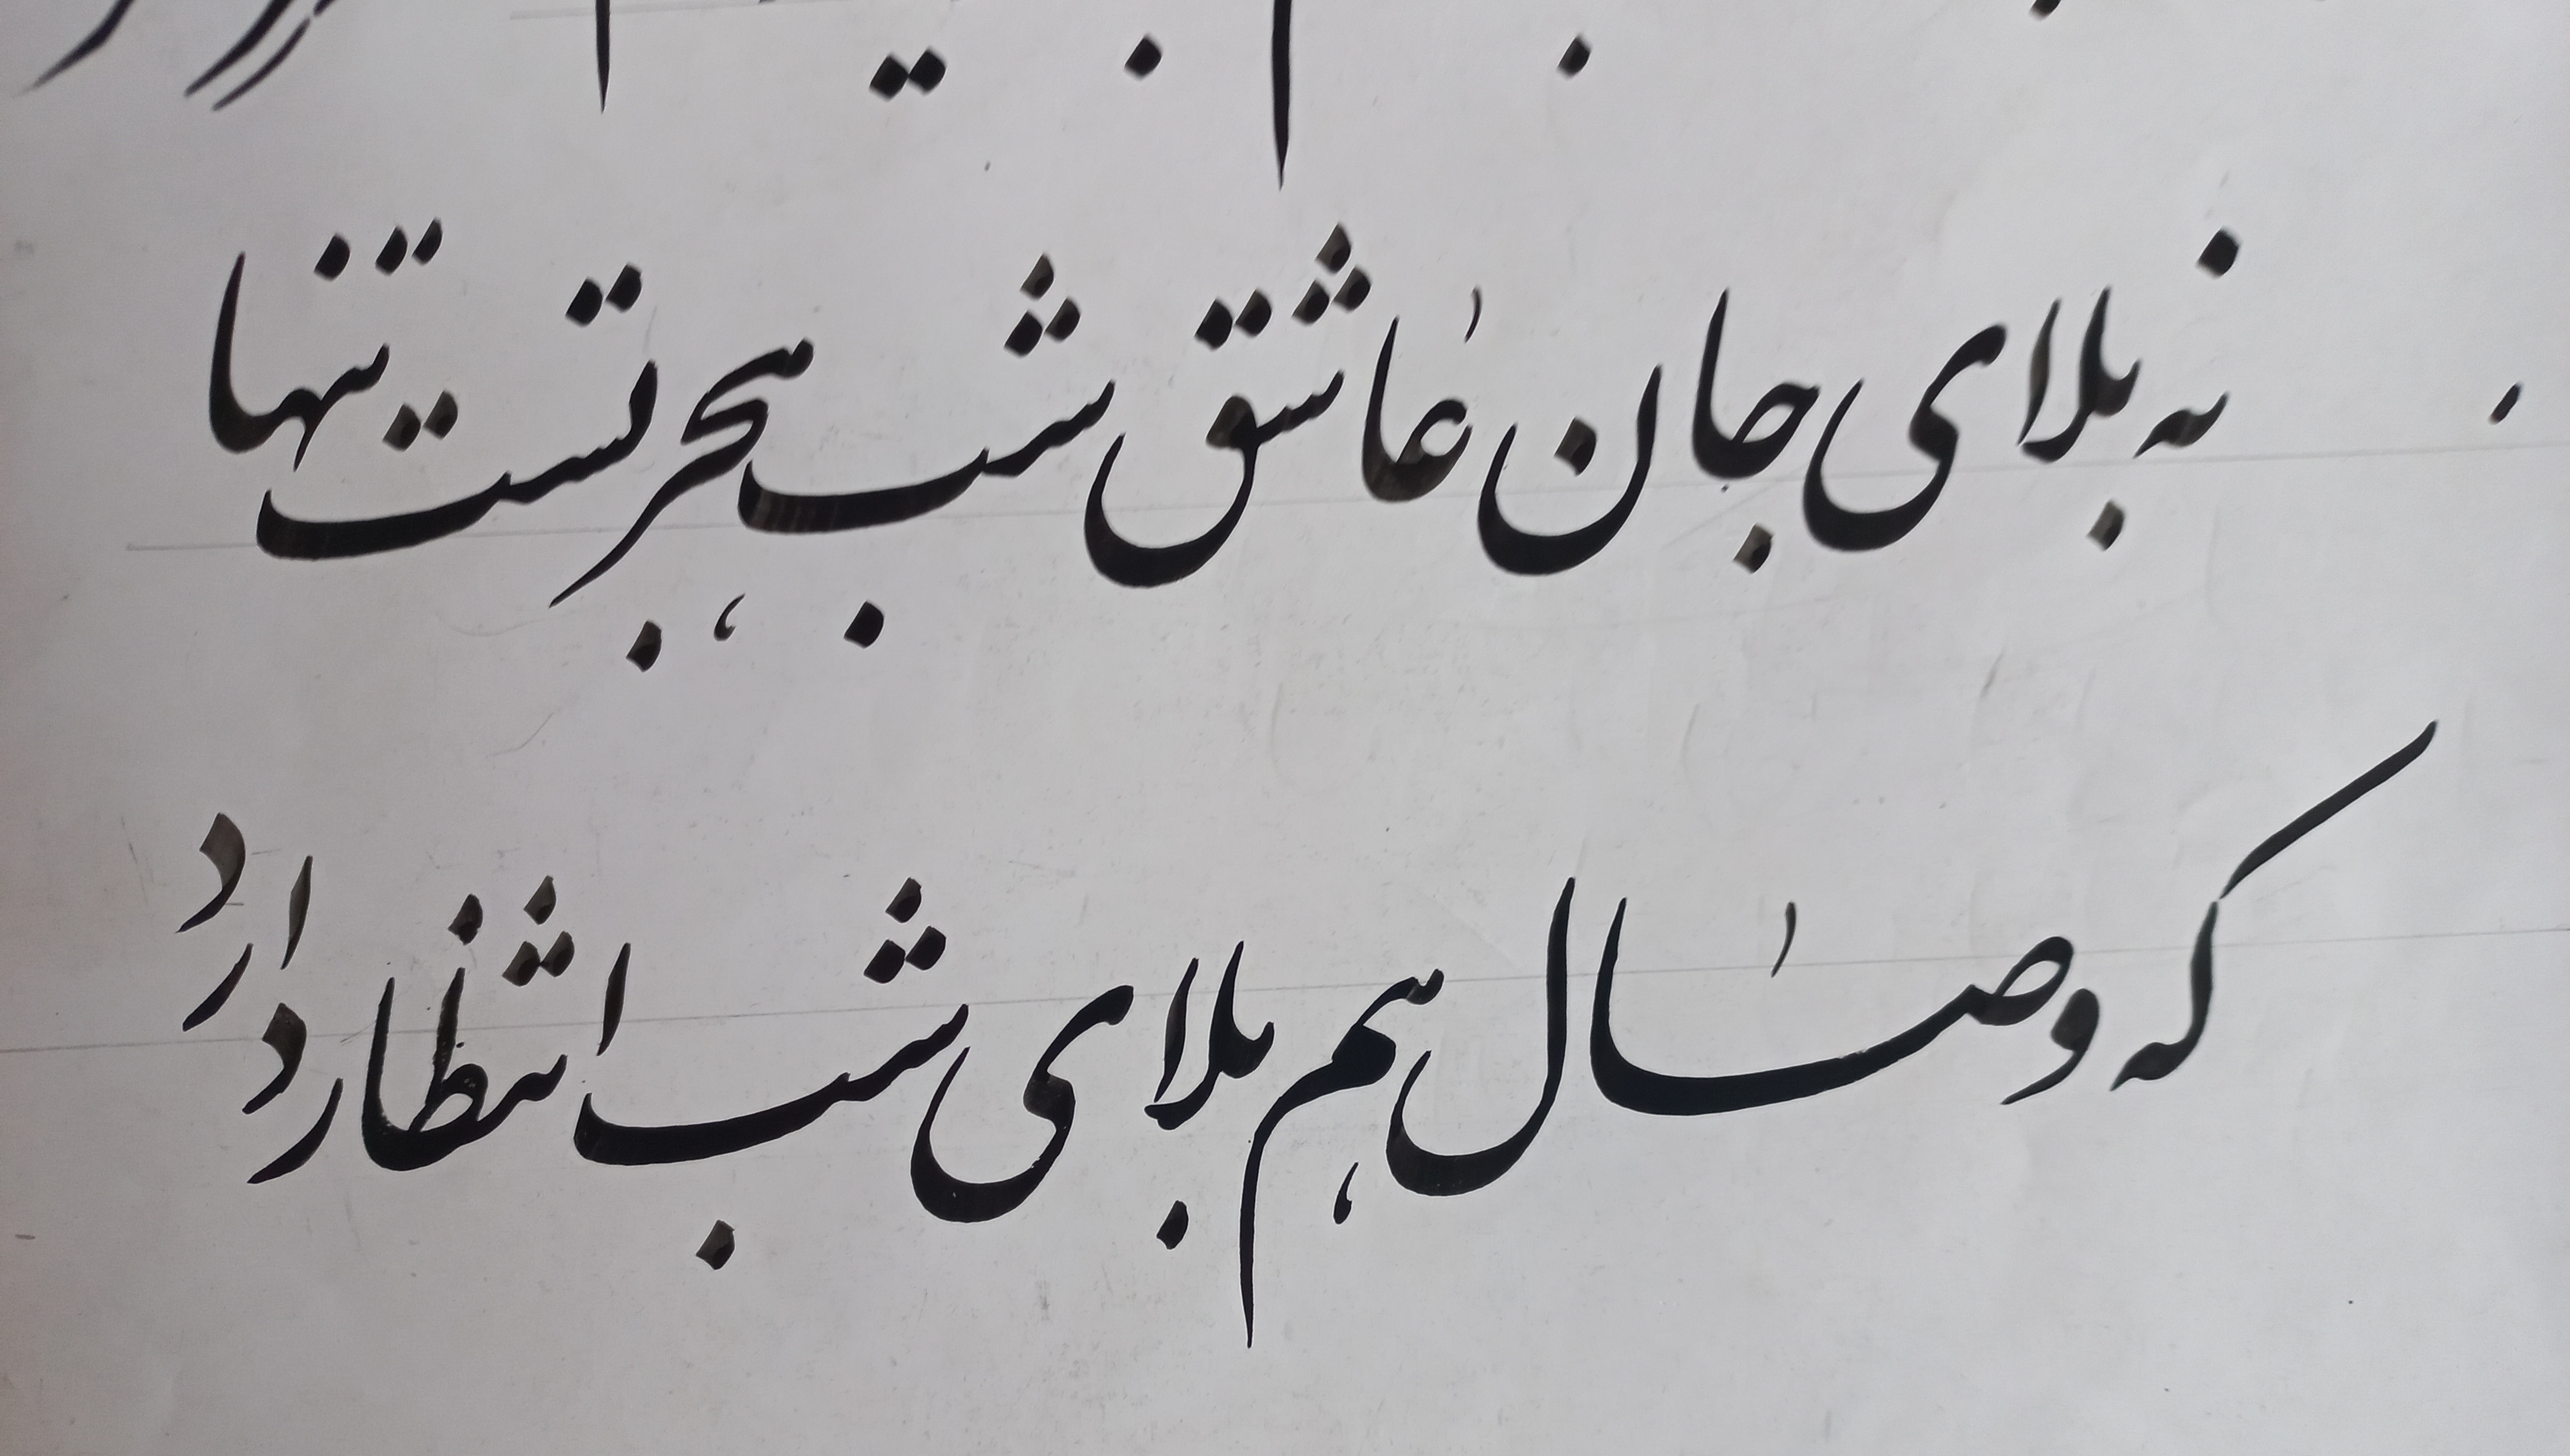 نه بلای جان عاشق شب هجر تست تنها
که وصال هم بلای شب انتظار دارد